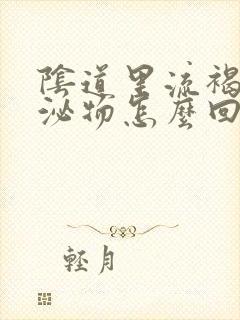 陰道里流褐
泌物怎麼回
輕月